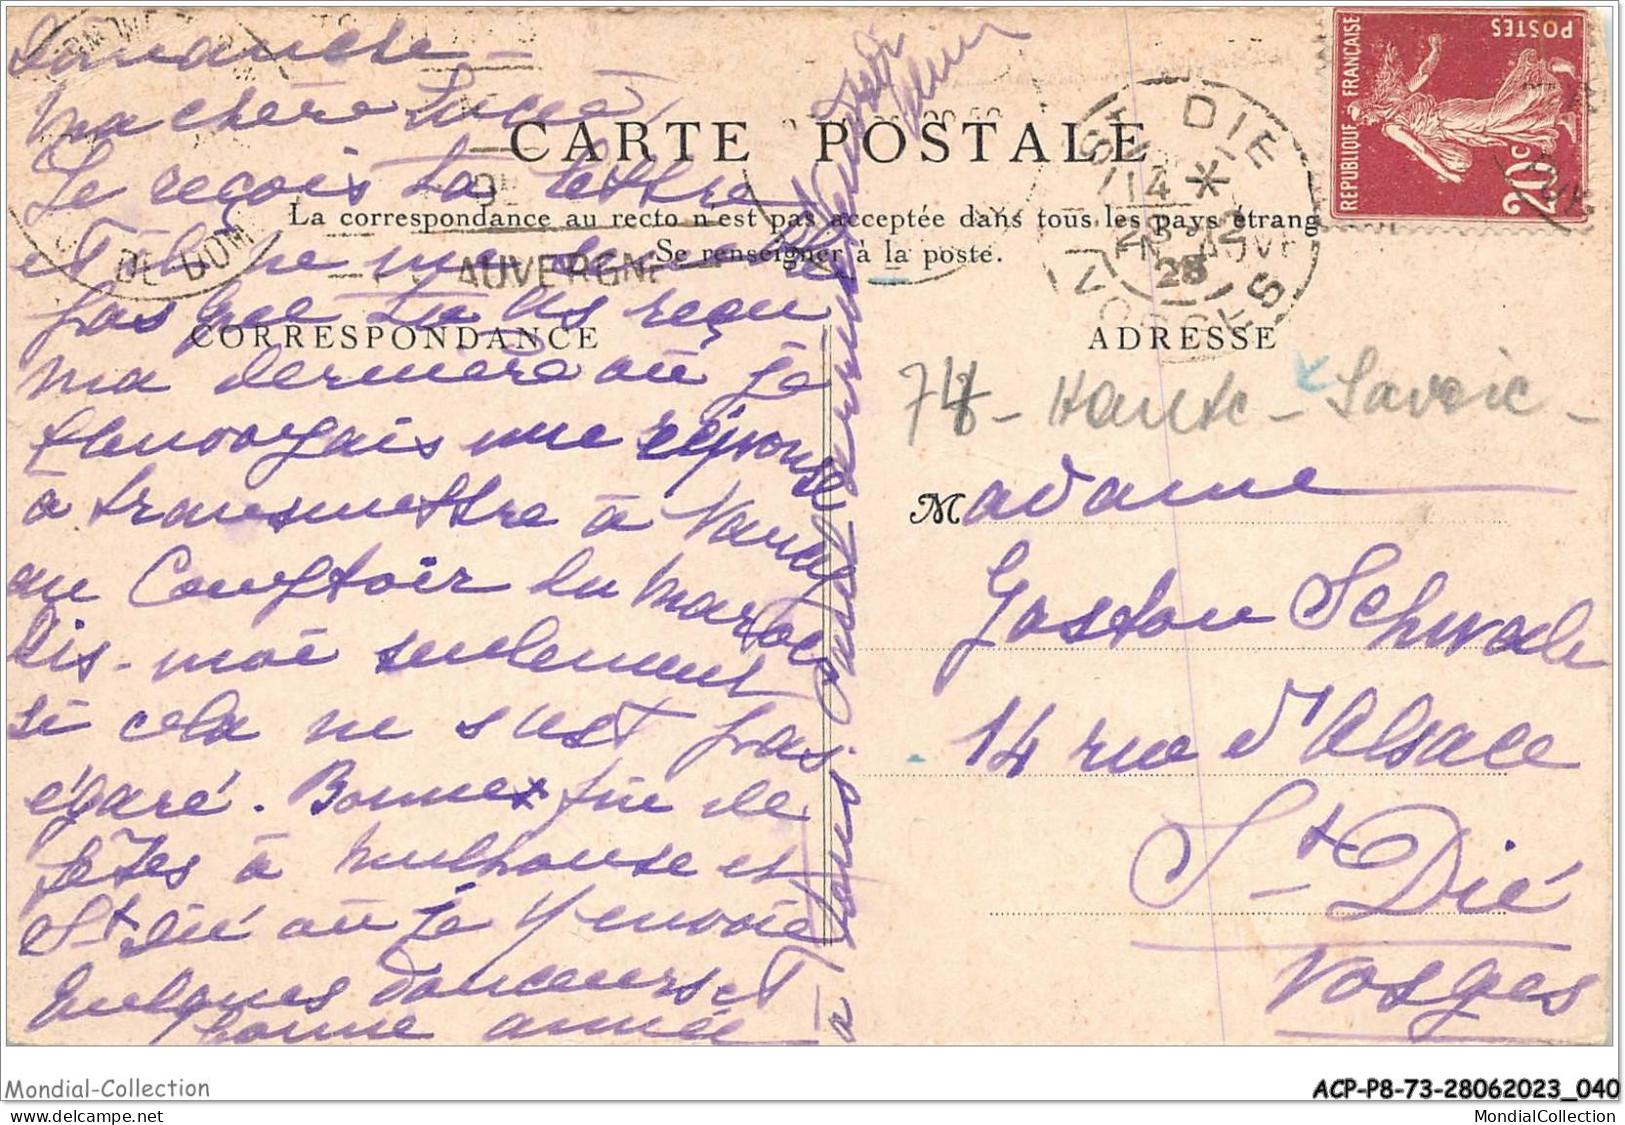 Dimanche
Ma chère Lucie,
Je reçois ta lettre
et tu ne me dis
pas que tu as reçu
ma dernière où je
t'envoyais une réponse
à transmettre à Nancy
au Comptoir du Maroc
Dis-moi seulement
si cela ne s'est pas
égaré. Bonnes fin de
fêtes à Mulhouse et
St Dié où je t'envoie
quelques douceurs et
bonne année
à tous
CARTE POSTALE
La correspondance au recto n'est pas acceptée dans tous les pays étrang
Se renseigner à la poste.
CORRESPONDANCE
ADRESSE
DE DOME
AUVERGNE
ST DIE
14 *
28
VOSGES
REPUBLIQUE FRANÇAISE
POSTES
20c
74 - Haute-Savoie -
Madame
Gaston Schwab
14 rue d'Alsace
St-Dié
Vosges
Mondial-Collection
ACP-P8-73-28062023_040
MondialCollection